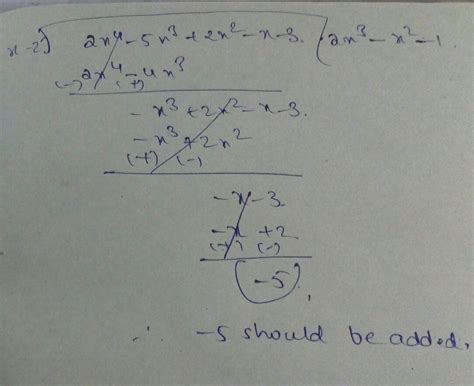 x-2) 2x⁴ - 5x³ + 2x² - x - 3. (2x³ - x² - 1
2x⁴ - 4x³
(-) (+)
- x³ + 2x² - x - 3.
- x³ + 2x²
(+) (-)
- x - 3
- x + 2
(+) (-)
-5
∴ -5 should be added.